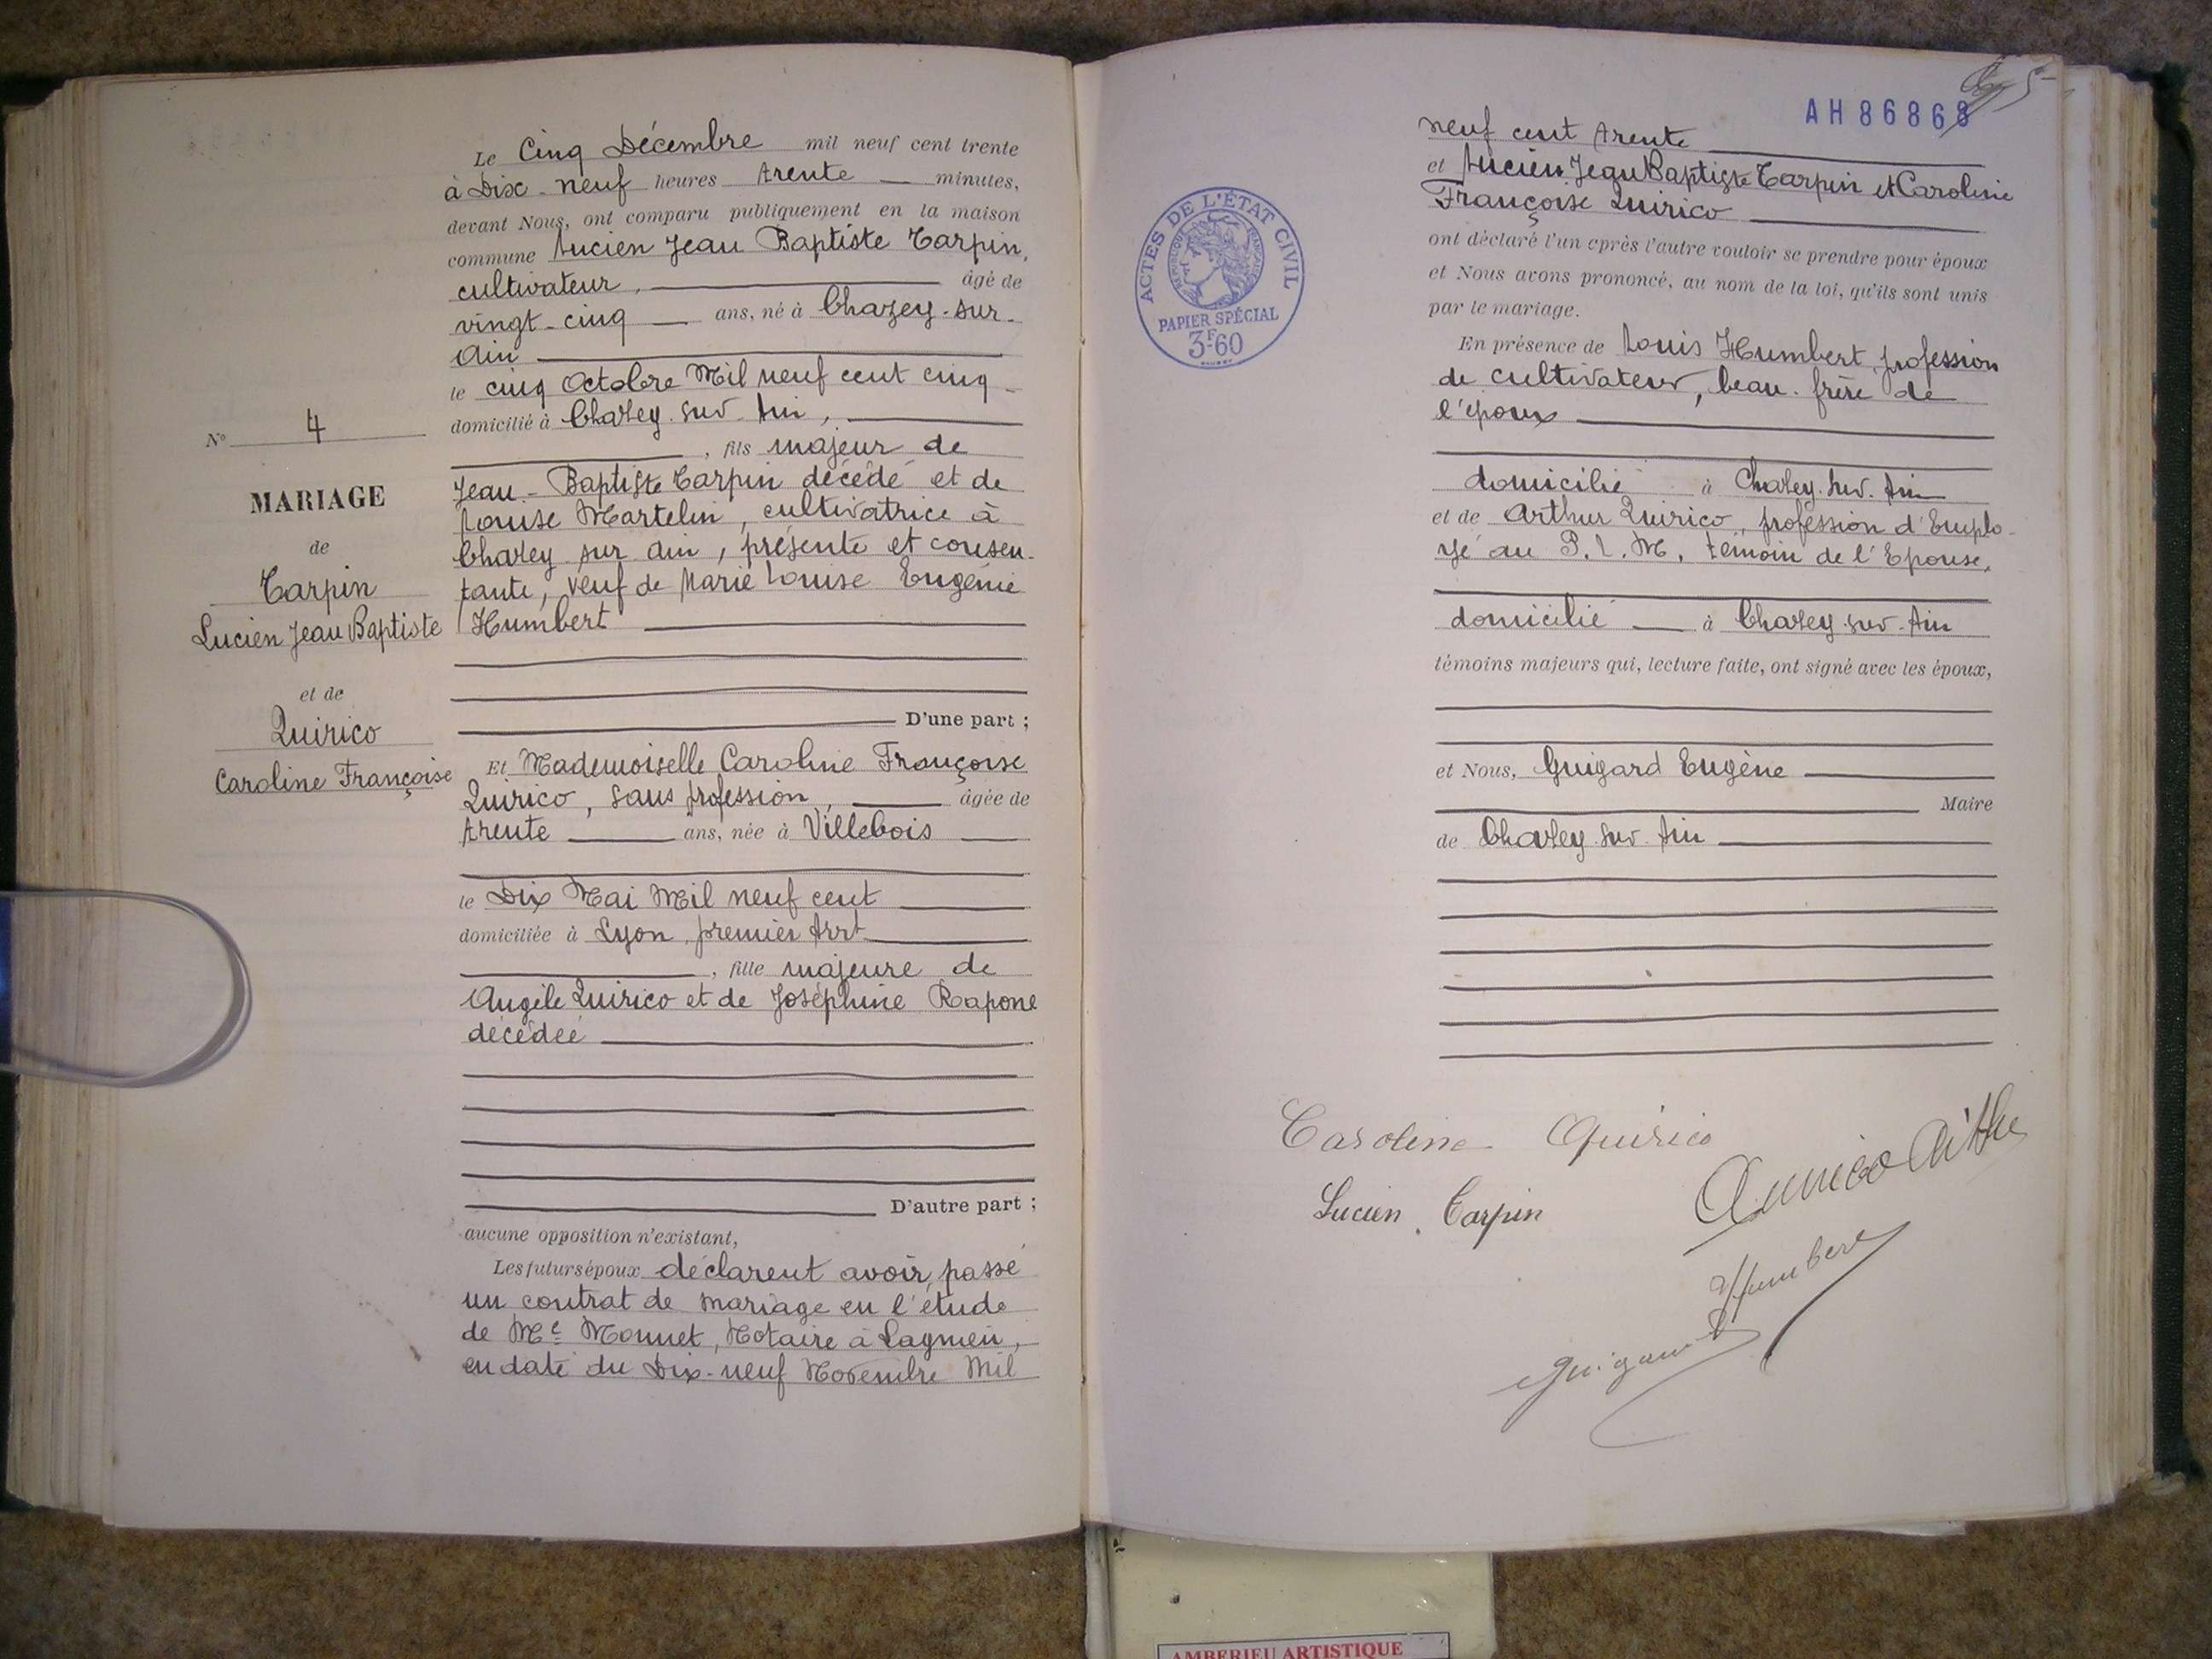 Le Cinq Décembre mil neuf cent trente
à Dix-neuf heures trente minutes,
devant Nous, ont comparu publiquement en la maison
commune Lucien Jean Baptiste Carpin,
cultivateur, âgé de
vingt-cinq ans, né à Chazey-sur-
Ain
le cinq Octobre Mil neuf cent cinq
domicilié à Chazey-sur-Ain,
, fils majeur de
Jean-Baptiste Carpin décédé et de
Louise Martelin, cultivatrice à
Chazey sur Ain, présente et consen-
tante, veuf de Marie Louise Eugénie
Humbert
N° 4
MARIAGE
de
Carpin
Lucien Jean Baptiste
et de
Quirico
Caroline Françoise
D'une part ;
Et Mademoiselle Caroline Françoise
Quirico, sans profession, âgée de
trente ans, née à Villebois
le Dix Mai Mil neuf cent
domiciliée à Lyon, premier Arrt
, fille majeure de
Angèle Quirico et de Joséphine Rapone
décédée
D'autre part ;
aucune opposition n'existant,
Les futurs époux déclarent avoir passé
un contrat de mariage en l'étude
de Me Monnet, Notaire à Lagnieu,
en date du Dix-neuf Novembre Mil
AH 86868
neuf cent trente
et Lucien Jean Baptiste Carpin et Caroline
Françoise Quirico
ont déclaré l'un après l'autre vouloir se prendre pour époux
et Nous avons prononcé, au nom de la loi, qu'ils sont unis
par le mariage.
ACTES DE L'ÉTAT CIVIL
RÉPUBLIQUE FRANÇAISE
PAPIER SPÉCIAL
3F60
En présence de Louis Humbert, profession
de cultivateur, beau-frère de
l'époux
domicilié à Chazey-sur-Ain
et de Arthur Quirico, profession d'Emplo-
yé au P.L.M. témoin de l'Epouse,
domicilié à Chazey-sur-Ain
témoins majeurs qui, lecture faite, ont signé avec les époux,
et Nous, Guigard Eugène
Maire
de Chazey-sur-Ain
Caroline Quirico
Quirico Arthur
Lucien Carpin
Humbert
Guigard
AMBERIEU ARTISTIQUE